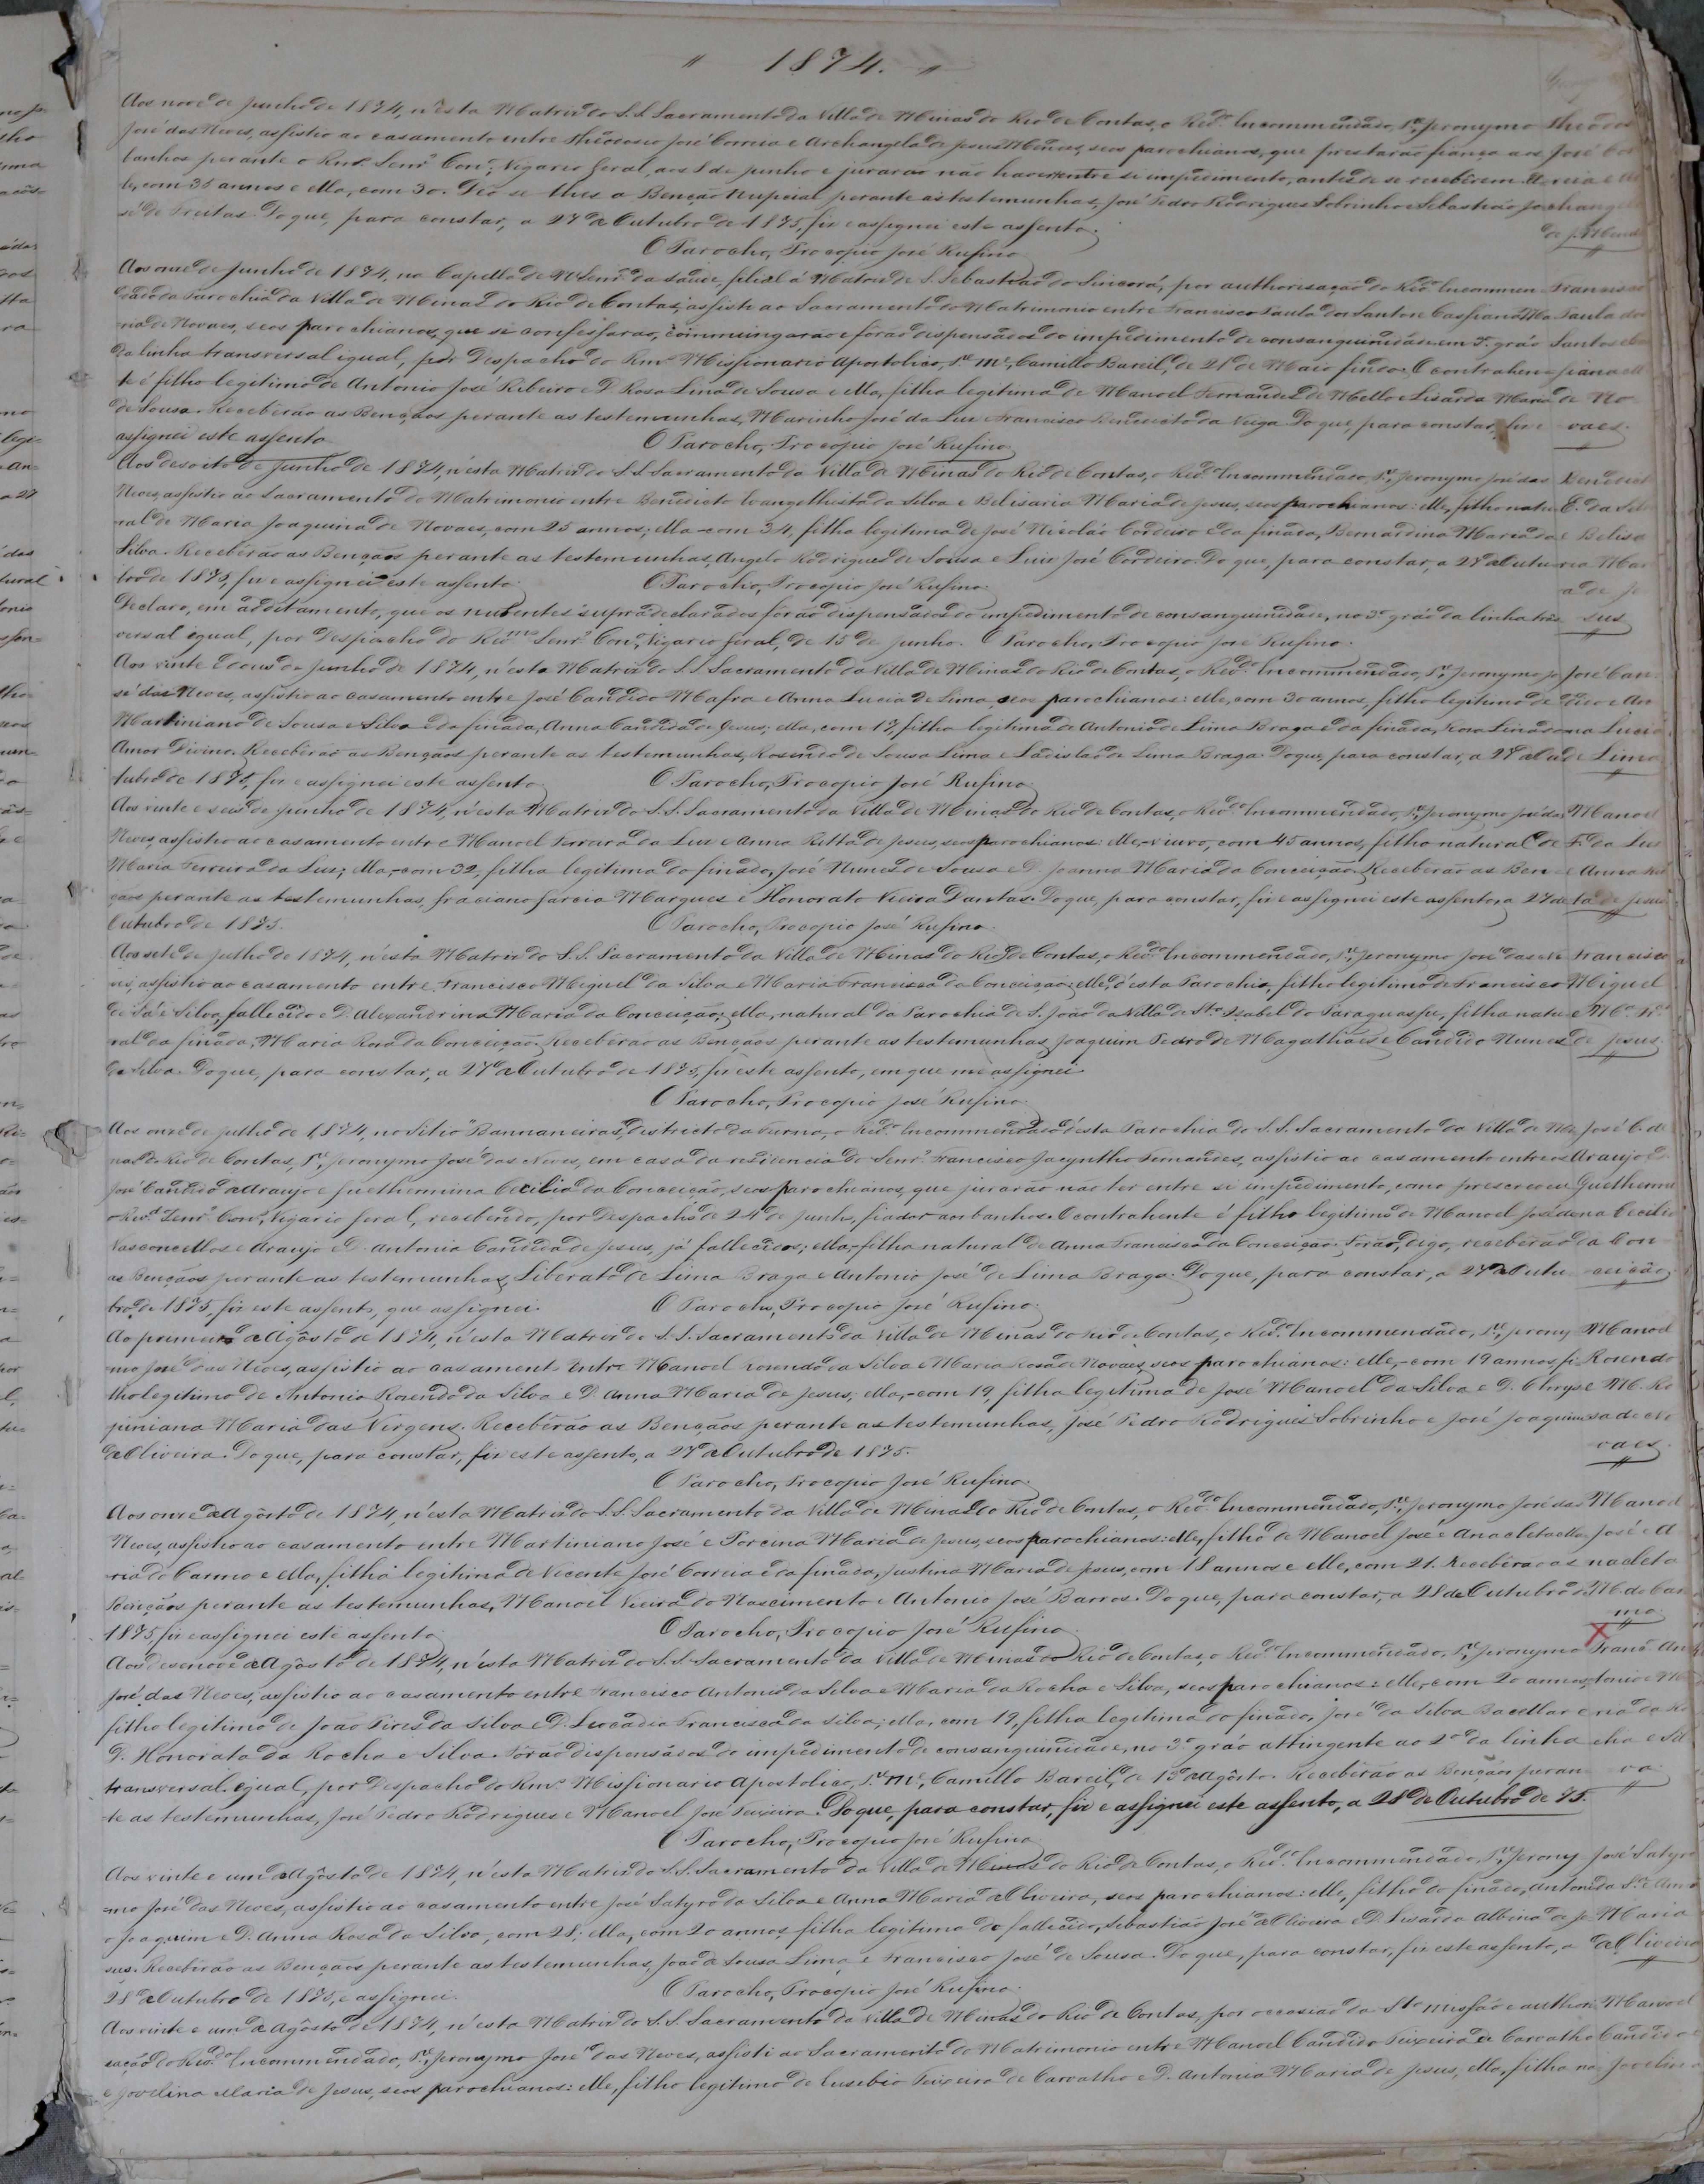 " 1874. "
Aos nove de Junho de 1874, n'esta Matriz do S. S. Sacramento da Villa de Minas do Rio de Contas, o Revdo. Encommendado, Pe. Jeronymo
José das Neves, assistio ao casamento entre Theodosio José Correia e Archangela de Jesus Mendes, seos parochianos, que prestarão fiança aos
banhos perante o Rmo. Senr. Con., Vigario Geral, aos 1 de Junho e jurarão não haver entre si impedimento, antes de se receberem. El-
le, com 35 annos e ella, com 30. Deo-se-lhes a Benção Nupcial perante as testemunhas, José Pedro Rodrigues Sobrinho e Sebastião Jo-
sé de Freitas. Do que, para constar, a 27 de Outubro de 1875, fiz e assignei este assento.
O Parocho, Procopio José Rufino.
Theodosio
José Cor-
reia e Ar-
changela
de J. Mendes
Aos onze de Junho de 1874, na Capella de N. Senra. da Saude, filial á Matriz de S. Sebastião do Sincorá, por authorisação do Revdo. Encommen-
dado da Parochia da Villa de Minas do Rio de Contas, assisti ao Sacramento do Matrimonio entre Francisco Paula dos Santos e Cassiana Ma-
ria de Novaes, seos parochianos, que se confessarão, commungarão e forão dispensados do impedimento de consanguinidade em 3º. gráo
da linha transversal igual, por Despacho do Rmo. Missionario Apostolico, Pe. Me., Camillo Bareil, de 21 de Maio findo. O contrahen-
te é filho legitimo de Antonio José Ribeiro e D. Rosa Lina de Sousa e ella, filha legitima de Manoel Fernandes de Mello e Lisarda Maria
de Sousa. Receberão as Bençãos perante as testemunhas, Marinho José da Luz e Francisco Benedicto da Veiga. Do que, para constar, fiz e
assignei este assento. O Parocho, Procopio José Rufino.
Francisco
Paula dos
Santos e Cas-
siana M.
de No-
vaes.
Aos desoito de Junho de 1874, n'esta Matriz do S. S. Sacramento da Villa de Minas do Rio de Contas, o Revdo. Encommendado, Pe. Jeronymo José das
Neves, assistio ao Sacramento do Matrimonio entre Benedicto Evangelhista da Silva e Belisaria Maria de Jesus, seos parochianos: elle, filho natu-
ral de Maria Joaquina de Novaes, com 25 annos; ella com 34, filha legitima de José Nicoláo Cordeiro e da finada, Bernardina Maria da
Silva. Receberão as Bençãos perante as testemunhas, Angelo Rodrigues de Sousa e Luiz José Cordeiro. Do que, para constar, a 27 de Outu-
bro de 1875, fiz e assignei este assento. O Parocho, Procopio José Rufino.
Declaro, em additamento, que os nubentes supradeclarados forão dispensados do impedimento de consanguinidade, no 3º. gráo da linha trãs-
versal igual, por Despacho do Revmo. Senr. Con., Vigario Geral, de 15 de Junho. O Parocho, Procopio José Rufino.
Benedicto
E. da Silva
e Belisa-
ria Mari-
a de Je-
sus
Aos vinte e dous de Junho de 1874, n'esta Matriz do S. S. Sacramento da Villa de Minas do Rio de Contas, o Revdo. Encommendado, Pe. Jeronymo Jo-
sé das Neves, assistio ao casamento entre José Candido Mafra e Anna Lucia de Lima, seos parochianos: elle, com 30 annos, filho legitimo de
Martiniano de Sousa e Silva e da finada, Anna Candida de Jesus; ella, com 19, filha legitima de Antonio de Lima Braga e da finada, Rosa Lina do
Amor Divino. Receberão as Bençãos perante as testemunhas, Rosendo de Sousa Lima e Ladislão de Lima Braga. Do que, para constar, a 27 de Ou-
tubro de 1875, fiz e assignei este assento. O Parocho, Procopio José Rufino.
José Can-
dido e An-
na Lucia
de Lima
Aos vinte e seis de Junho de 1874, n'esta Matriz do S. S. Sacramento da Villa de Minas do Rio de Contas, o Revdo. Encommendado, Pe. Jeronymo José das
Neves, assistio ao casamento entre Manoel Ferreira da Luz e Anna Ritta de Jesus, seos parochianos: elle, viuvo, com 45 annos, filho natural de
Maria Ferreira da Luz; ella, com 32, filha legitima do finado, José Nunes de Sousa e D. Joanna Maria da Conceição. Receberão as Ben-
çãos perante as testemunhas, Graciano Garcia Marques e Honorato Vieira Dantas. Do que, para constar, fiz e assignei este assento, a 27 de
Outubro de 1875. O Parocho, Procopio José Rufino.
Manoel
F. da Luz
e Anna Rit-
ta de Jesus
Aos sete de Julho de 1874, n'esta Matriz do S. S. Sacramento da Villa de Minas do Rio de Contas, o Revdo. Encommendado, Pe. Jeronymo José das Ne-
ves, assistio ao casamento entre Francisco Miguel da Silva e Maria Francisca da Conceição: elle, d'esta Parochia, filho legitimo de Francisco
de Sá e Silva, fallecido e D. Alexandrina Maria da Conceição; ella, natural da Parochia de S. João da Villa de Sta. Isabel do Paraguassu, filha natu-
ral da finada, Maria Rosa da Conceição. Receberão as Bençãos perante as testemunhas, Joaquim Pedro de Magalhães e Candido Nunes
da Silva. Do que, para constar, a 27 de Outubro de 1875, fiz este assento, em que me assignei.
O Parocho, Procopio José Rufino.
Francisco
Miguel
e Ma. Fca.
de Jesus.
Aos onze de Julho de 1874, no Sitio "Bannaneiras", districto da Furna, o Revdo. Encommendado d'esta Parochia do S. S. Sacramento da Villa de Mi-
nas do Rio de Contas, Pe. Jeronymo José das Neves, em casa da residencia do Senr. Francisco Jacyntho Fernandes, assistio ao casamento entre os
José Candido de Araujo e Guelhermina Cecilia da Conceição, seos parochianos, que jurarão não ter entre si impedimento, como prescreveu
o Revdo. Senr. Con., Vigario Geral, recebendo, por Despacho de 24 de Junho, fiador aos banhos. O contrahente é filho legitimo de Manoel José de
Vasconcellos e Araujo e D. Antonia Candida de Jesus, já fallecidos; ella, filha natural de Anna Francisca da Conceição. Forão, digo, receberão
as Bençãos perante as testemunhas, Liberato de Lima Braga e Antonio José de Lima Braga. Do que, para constar, a 27 de Outu-
bro de 1875, fiz este assento, que assignei. O Parocho, Procopio José Rufino.
José C. de
Araujo e
Guelhermi-
na Cecilia
da Con-
ceição.
Ao primeiro de Agôsto de 1874, n'esta Matriz do S. S. Sacramento da Villa de Minas do Rio de Contas, o Revdo. Encommendado, Pe. Jerony-
mo José das Neves, assistio ao casamento entre Manoel Rosendo da Silva e Maria Rosa de Novaes, seos parochianos: elle, com 19 annos, fi-
lho legitimo de Antonio Rosendo da Silva e D. Anna Maria de Jesus; ella, com 19, filha legitima de José Manoel da Silva e D. Chrys-
piniana Maria das Virgens. Receberão as Bençãos perante as testemunhas, José Pedro Rodrigues Sobrinho e José Joaquim
de Oliveira. Do que, para constar, fiz este assento, a 27 de Outubro de 1875.
O Parocho, Procopio José Rufino.
Manoel
Rosendo
e M. Ro-
sa de No-
vaes.
Aos onze de Agôsto de 1874, n'esta Matriz do S. S. Sacramento da Villa de Minas do Rio de Contas, o Revdo. Encommendado, Pe. Jeronymo José das
Neves, assistio ao casamento entre Martiniano José e Porcina Maria de Jesus, seos parochianos: elle, filho de Manoel José e Anacleta Ma-
ria do Carmo e ella, filha legitima de Vicente José Correia e da finada, Justina Maria de Jesus, com 18 annos e elle, com 21. Receberão as
Bençãos perante as testemunhas, Manoel Vieira do Nascimento e Antonio José Barros. Do que, para constar, a 28 de Outubro de
1875, fiz e assignei este assento. O Parocho, Procopio José Rufino.
Manoel
José e A-
nacleta
M. do Car-
mo.
Aos desenove de Agôsto de 1874, n'esta Matriz do S. S. Sacramento da Villa de Minas do Rio de Contas, o Revdo. Encommendado, Pe. Jeronymo
José das Neves, assistio ao casamento entre Francisco Antonio da Silva e Maria da Rocha e Silva, seos parochianos: elle, com 20 annos,
filho legitimo de João Pires da Silva e D. Leocadia Francisca da Silva; ella, com 19, filha legitima do finado, José da Silva Bacellar e
D. Honorata da Rocha e Silva. Forão dispensados do impedimento de consanguinidade, no 3º. gráo attingente ao 2º. da linha
transversal igual, por Despacho do Rmo. Missionario Apostolico, Pe. Me., Camillo Bareil, de 13 de Agôsto. Receberão as Bençãos peran-
te as testemunhas, José Pedro Rodrigues e Manoel José Teixeira. Do que, para constar, fiz e assignei este assento, a 28 de Outubro de 75.
O Parocho, Procopio José Rufino.
X
Franco. An-
tonio e Ma-
ria da Ro-
cha e Sil-
va.
Aos vinte e um de Agôsto de 1874, n'esta Matriz do S. S. Sacramento da Villa de Minas do Rio de Contas, o Revdo. Encommendado, Pe. Jerony-
mo José das Neves, assistio ao casamento entre José Satyro da Silva e Anna Maria de Oliveira, seos parochianos: elle, filho do finado, Antoni-
o Joaquim e D. Anna Rosa da Silva, com 28; ella, com 20 annos, filha legitima do fallecido, Sebastião José de Oliveira e D. Lisarda Albina de Je-
sus. Receberão as Bençãos perante as testemunhas, João de Sousa Lima e Francisco José de Sousa. Do que, para constar, fiz este assento, a
28 de Outubro de 1875, e assignei. O Parocho, Procopio José Rufino.
José Satyro
da Sa. e Anna
Maria
de Oliveira
Aos vinte e um de Agôsto de 1874, n'esta Matriz do S. S. Sacramento da Villa de Minas do Rio de Contas, por occasião da Sta. Missão e authori-
sação do Revdo. Encommendado, Pe. Jeronymo José das Neves, assisti ao Sacramento do Matrimonio entre Manoel Candido Teixeira de Carvalho
e Jovelina Maria de Jesus, seos parochianos: elle, filho legitimo de Eusebio Teixeira de Carvalho e D. Antonia Maria de Jesus, ella, filha na-
Manoel
Candido
Jovelina